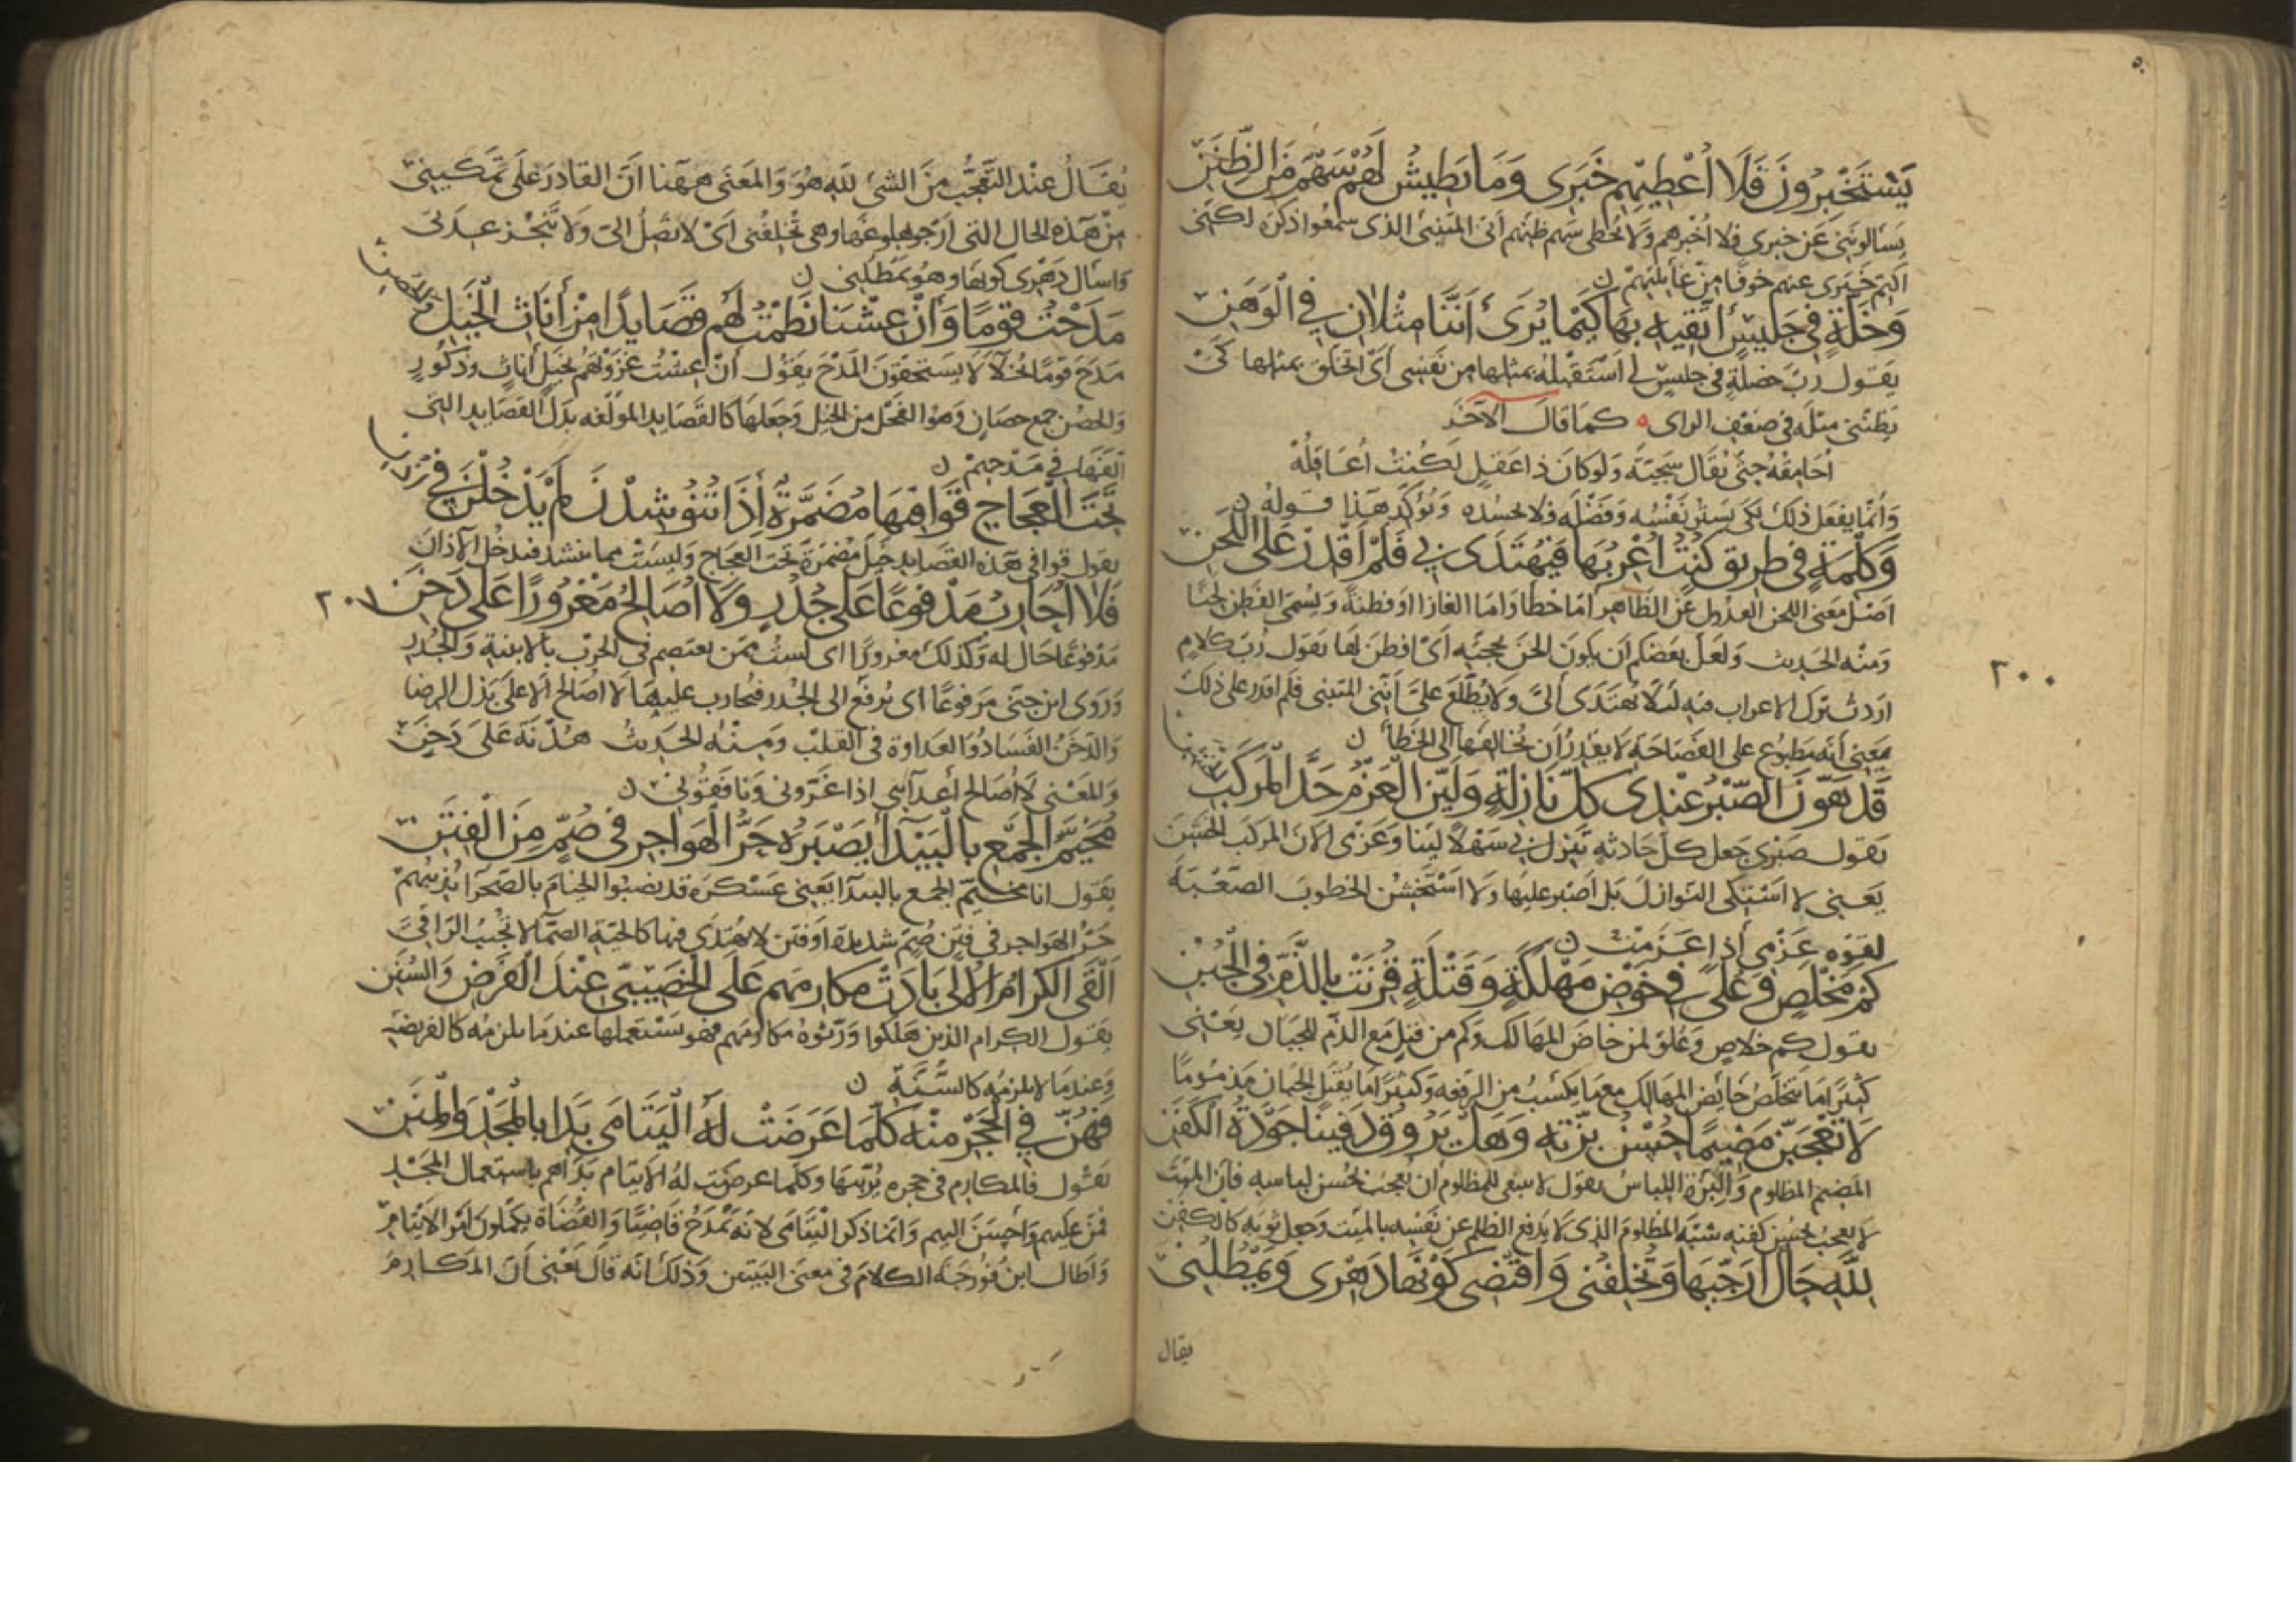 يَسْتَخْبِرُونَ فَلَا أُعْطِيهِم خَبَرِى وَمَا يَطِيشُ لَهُمْ سَهْمٌ مِنَ الظِّنَنِ
يسألونني عن خبرى فلا أخبرهم ولا يخطى سهم ظنهم أنى المتنبى الذى سمعوا ذكره لكننى
اكتم خبرى عنهم خوفا من غايلتهم ن
وَخَلَّةٍ فِي جَلِيسٍ أَتَّقِيهِ بِهَا كَيْمَا يُرَى أَنَّنَا مِثْلَانِ فِي الْوَهَنِ
يقول رب خصلة فى جليس لى استقبله بمثلها من نفسى أى اتخلق بمثلها كى
يظننى مثله فى ضعف الراى ه كما قال الآخر
أحامقه حتى يقال سجية ولو كان ذا عقل لكنت أعاقله
وانما يفعل ذلك لكى يستر نفسه وفضله فلا يحسده ويؤكد هذا قوله ن
وَكِلْمَةٍ فى طريق كنت أُعْرِبُهَا فَيُهْتَدَى لِي فَلَمْ أَقْدِرْ عَلَى اللَّحَنِ
اصل معنى اللحن العدول عن الظاهر اما خطا واما الغازا او فطنة ويسمى الفطن لحنا
ومنه الحديث ولعل بعضكم أن يكون الحن بحجته أى افطن لها يقول رب كلام
اردت ترك الاعراب فيه لئلا يهتدى الى ولا يطلع على أننى المتنبى فلم اقدر على ذلك
يعنى أنه مطبوع على الفصاحة لا يقدر أن يخالفها الى الخطأ ن
قَدْ هَوَّنَ الصَّبْرُ عِنْدِى كلَّ نَازِلَةٍ وَلَيَّنَ الْعَزْمُ حَدَّ الْمَرْكَبِ الخشن
٢٠٠
يقول صبرى جعل كل حادثة تنزل بى سهلا لينا وعزمى ألان المركب الخشن
يعنى لا اشتكى النوازل بل اصبر عليها ولا استخشن الخطوب الصعبة
لقوه عزمى إذا عزمت ن
كَمْ مَخْلَصٍ وَعُلًى فِي خَوْضِ مَهْلَكَةٍ وَقَتْلَةٍ قُرِنَتْ بِالذَّمِّ فِى الْجُبْنِ
يقول كم خلاص وعلو لمن خاض المهالك وكم من قتل مع الذم للجبان يعنى
كثيرا ما يتخلص خائض المهالك مع ما يكسب من الرفعه وكثيرا ما يقتل الجبان مذموما
لَا يُعْجِبَنَّ مَضِيمًا حُسْنُ بِزَّتِهِ وَهَلْ يَرُوقُ دَفِينًا جَوْدَةُ الْكَفَنِ
المضيم المظلوم والبزة اللباس يقول لا ينبغى للمظلوم ان يعجب بحسن لباسه فان الميت
لا يعجب بحسن كفنه شبه المظلوم الذى لا يدفع الظلم عن نفسه بالميت وجعل ثوبه كالكفن
لِلَّهِ حَالٌ أُرَجِّيهَا وَتُخْلِفُنِى وَأَقْتَضِى كَوْنَهَا دَهْرِى وَيَمْطُلُنِى
يقال
يُقَالُ عند التعجب من الشئ لله هو والمعنى ههنا ان القادر على تمكينى
من هذه الحال التى ارجو بلوغها وهى تخلفنى أى لا تصل الى ولا تنجز عدتى
واسأل دهرى كونها وهو يمطلنى ن
مَدَحْتُ قَوْمًا وَإِنْ عِشْنَا نَظَمْتُ لَهُم قَصَايِدًا مِنْ أُنَاثِ الْخَيْلِ والحصن
مدح قوما بخلا لا يستحقون المدح يقول ان عشت غزوتهم بخيل أناث وذكور
والحصن جمع حصان وهو الفحل من الخيل وجعلها كالقصايد المولفه بدل القصايد التى
ألفها فى مدحهم ن
تَحْتَ الْعَجَاجِ قَوَافِيهَا مُضَمَّرَةٌ إِذَا تُنُوشِدْنَ لَمْ يَدْخُلْنَ فِي أذن
يقول قوافى هذه القصايد خيل مضمرة تحت العجاج وليست مما ينشد فيدخل الآذان
فَلَا أُحَارِبُ مَدْفُوعًا عَلَى جُدُرٍ وَلَا أُصَالِحُ مَغْرُورًا عَلَى دَخَنِ
٢٠١
مدفوعا حال له وكذلك مغرورا اى لست ممن يعتصم فى الحرب بالابنية والجدر
وروى ابن جنى مرفوعا اى يرفع الى الجدر فيحارب عليها لا اصالح الا على بذل الرضا
والدخن الفساد والعداوة فى القلب ومنه الحديث هدنة على دخن
والمعنى لا أصالح أعدآئى اذا غرونى ونافقونى ن
مُخَيِّمُ الْجَمْعِ بِالْبَيْدَاءِ يَصْهَرُهُ حَرُّ الْهَوَاجِرِ فى صُمٍّ مِنَ الْفِتَنِ
يقول انا مخيم الجمع بالبيدآ يعنى عسكره قد نصبوا الخيام بالصحرا يذيبهم
حر الهواجر فى فتن صم شديدة او فتن لا يهتدى فيها كالحية الصمآ لا تجيب الراقى
أَلْقَى الْكِرَامُ الأُلَى بَادَتْ مَكَارِمَهُم عَلَى الْخَصِيبِيِّ عِنْدَ الْفَرْضِ وَالسُّنَنِ
يقول الكرام الذين هلكوا ورثوه مكارمهم فهو يستعملها عند ما يلزمه كالفريضه
وعند ما لا يلزمه كالسنة ن
فَهُنَّ فِي الْحَجْرِ مِنْهُ كُلَّمَا عَرَضَتْ لَهُ الْيَتَامَى بَدَا بِالْمَجْدِ وَالْمِنَنِ
يقول فالمكارم فى حجره يربيها وكلما عرضت له الايتام بدأهم باستعمال المجد
فمن عليهم وأحسن اليهم وانما ذكر اليتامى لانه يمدح قاضيا والقضاة يكفلون امر الايتام
وأطال ابن فورجه الكلام فى معنى البيتين وذلك انه قال يعنى أن المكارم